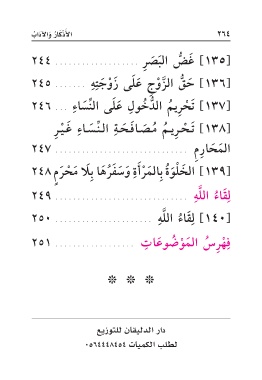 ٢٦٤ الأَذْكَارُ وَالآدَابُ
[١٣٥] غَضُّ البَصَرِ ٢٤٤
[١٣٦] حَقُّ الزَّوْجِ عَلَى زَوْجَتِهِ ٢٤٥
[١٣٧] تَحْرِيمُ الدُّخُولِ عَلَى النِّسَاءِ ٢٤٦
[١٣٨] تَحْرِيمُ مُصَافَحَةِ النِّسَاءِ غَيْرِ
المَحَارِمِ ٢٤٧
[١٣٩] الخَلْوَةُ بِالمَرْأَةِ وَسَفَرُهَا بِلَا مَحْرَمٍ ٢٤٨
لِقَاءُ اللَّهِ ٢٤٩
[١٤٠] لِقَاءُ اللَّهِ ٢٥٠
فِهْرِسُ المَوْضُوعَاتِ ٢٥١
* * *
دار الدليقان للتوزيع
لطلب الكميات ٠٥٦٤٤٤٨٤٥٤